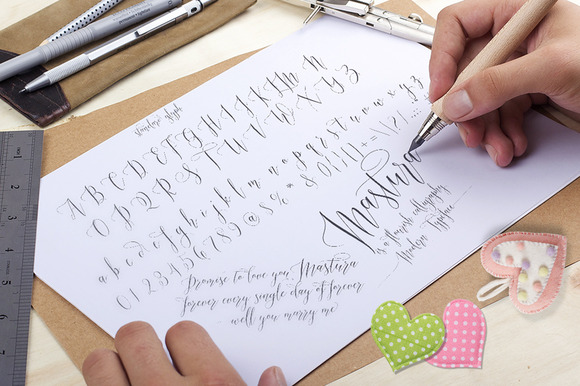 glyph
A B C D E F G H I J K L M N
O P Q R S T U V W X Y Z
a b c d e f g h i j k l m n o p q r s t u v w x y z
0 1 2 3 4 5 6 7 8 9 @ $ % * &
Mastura
is a flourish calligraphy
Modern Typeface
Promise to love you Mastura
forever every single day of forever
well you marry me
1
2
3
4
5
6
7